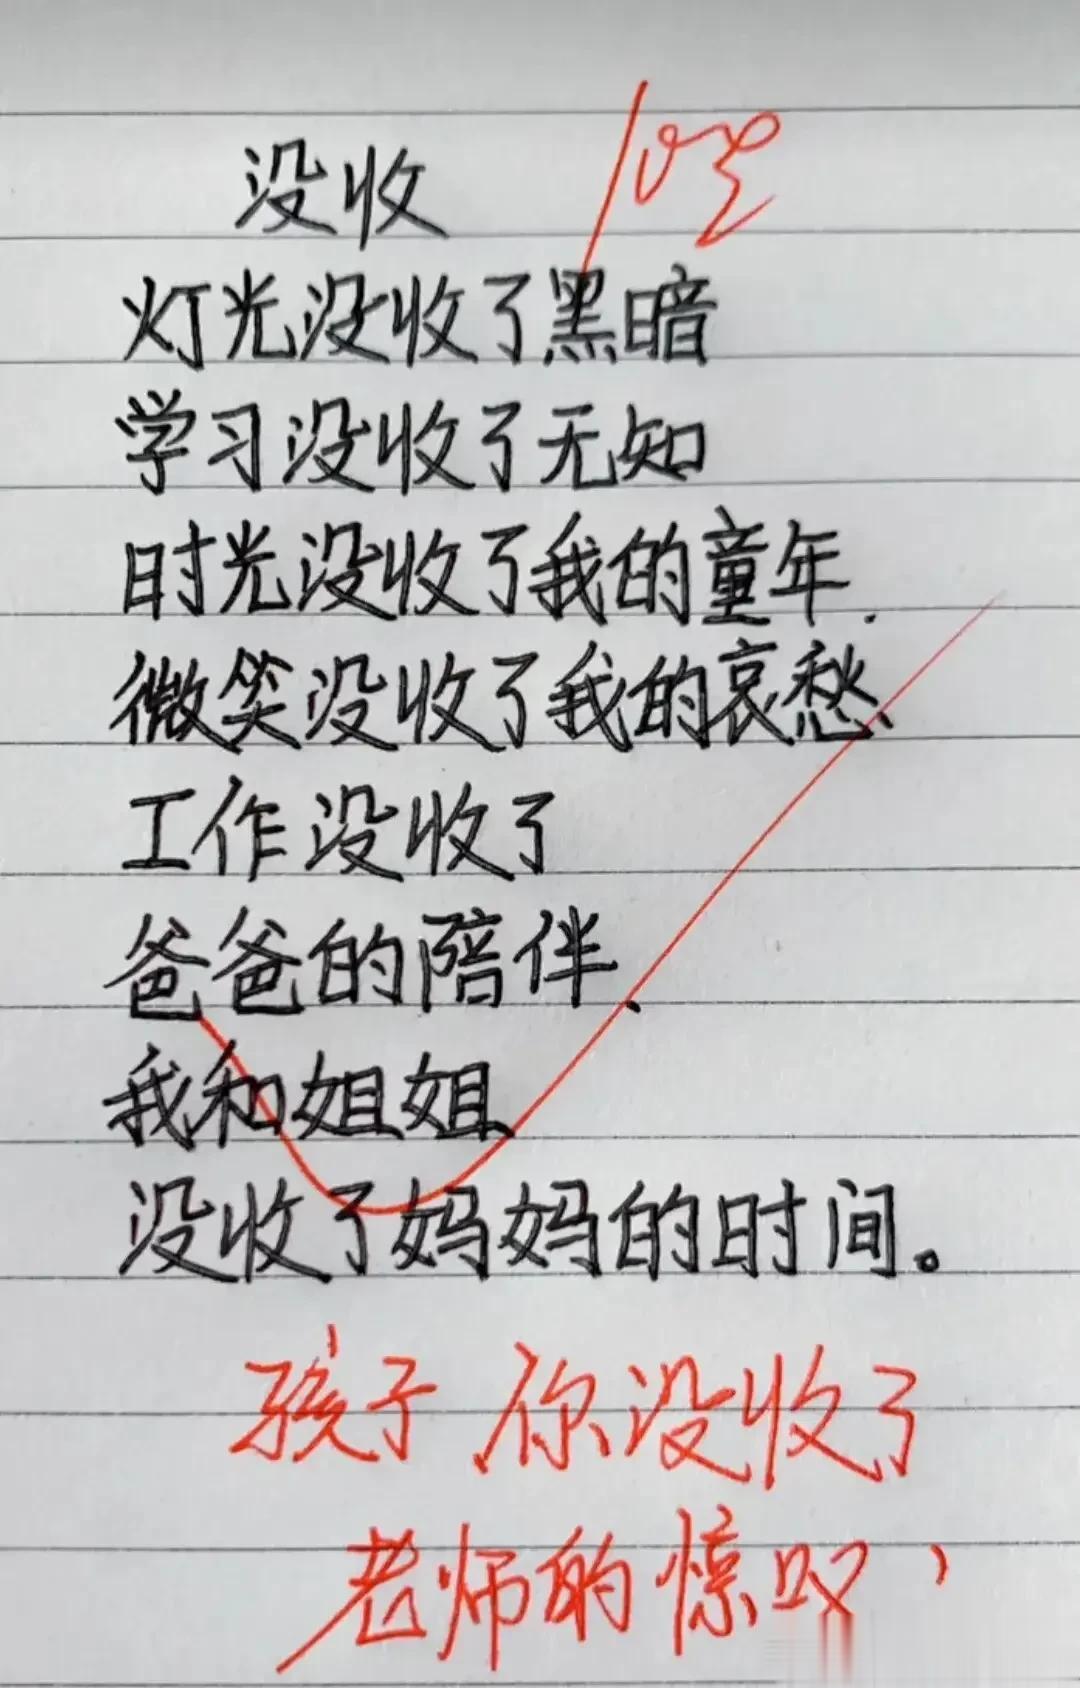 没收
灯光没收了黑暗
学习没收了无知
时光没收了我的童年.
微笑没收了我的哀愁、
工作没收了
爸爸的陪伴、
我和姐姐、
没收了妈妈的时间。
孩子,你没收了
老师的惊叹,